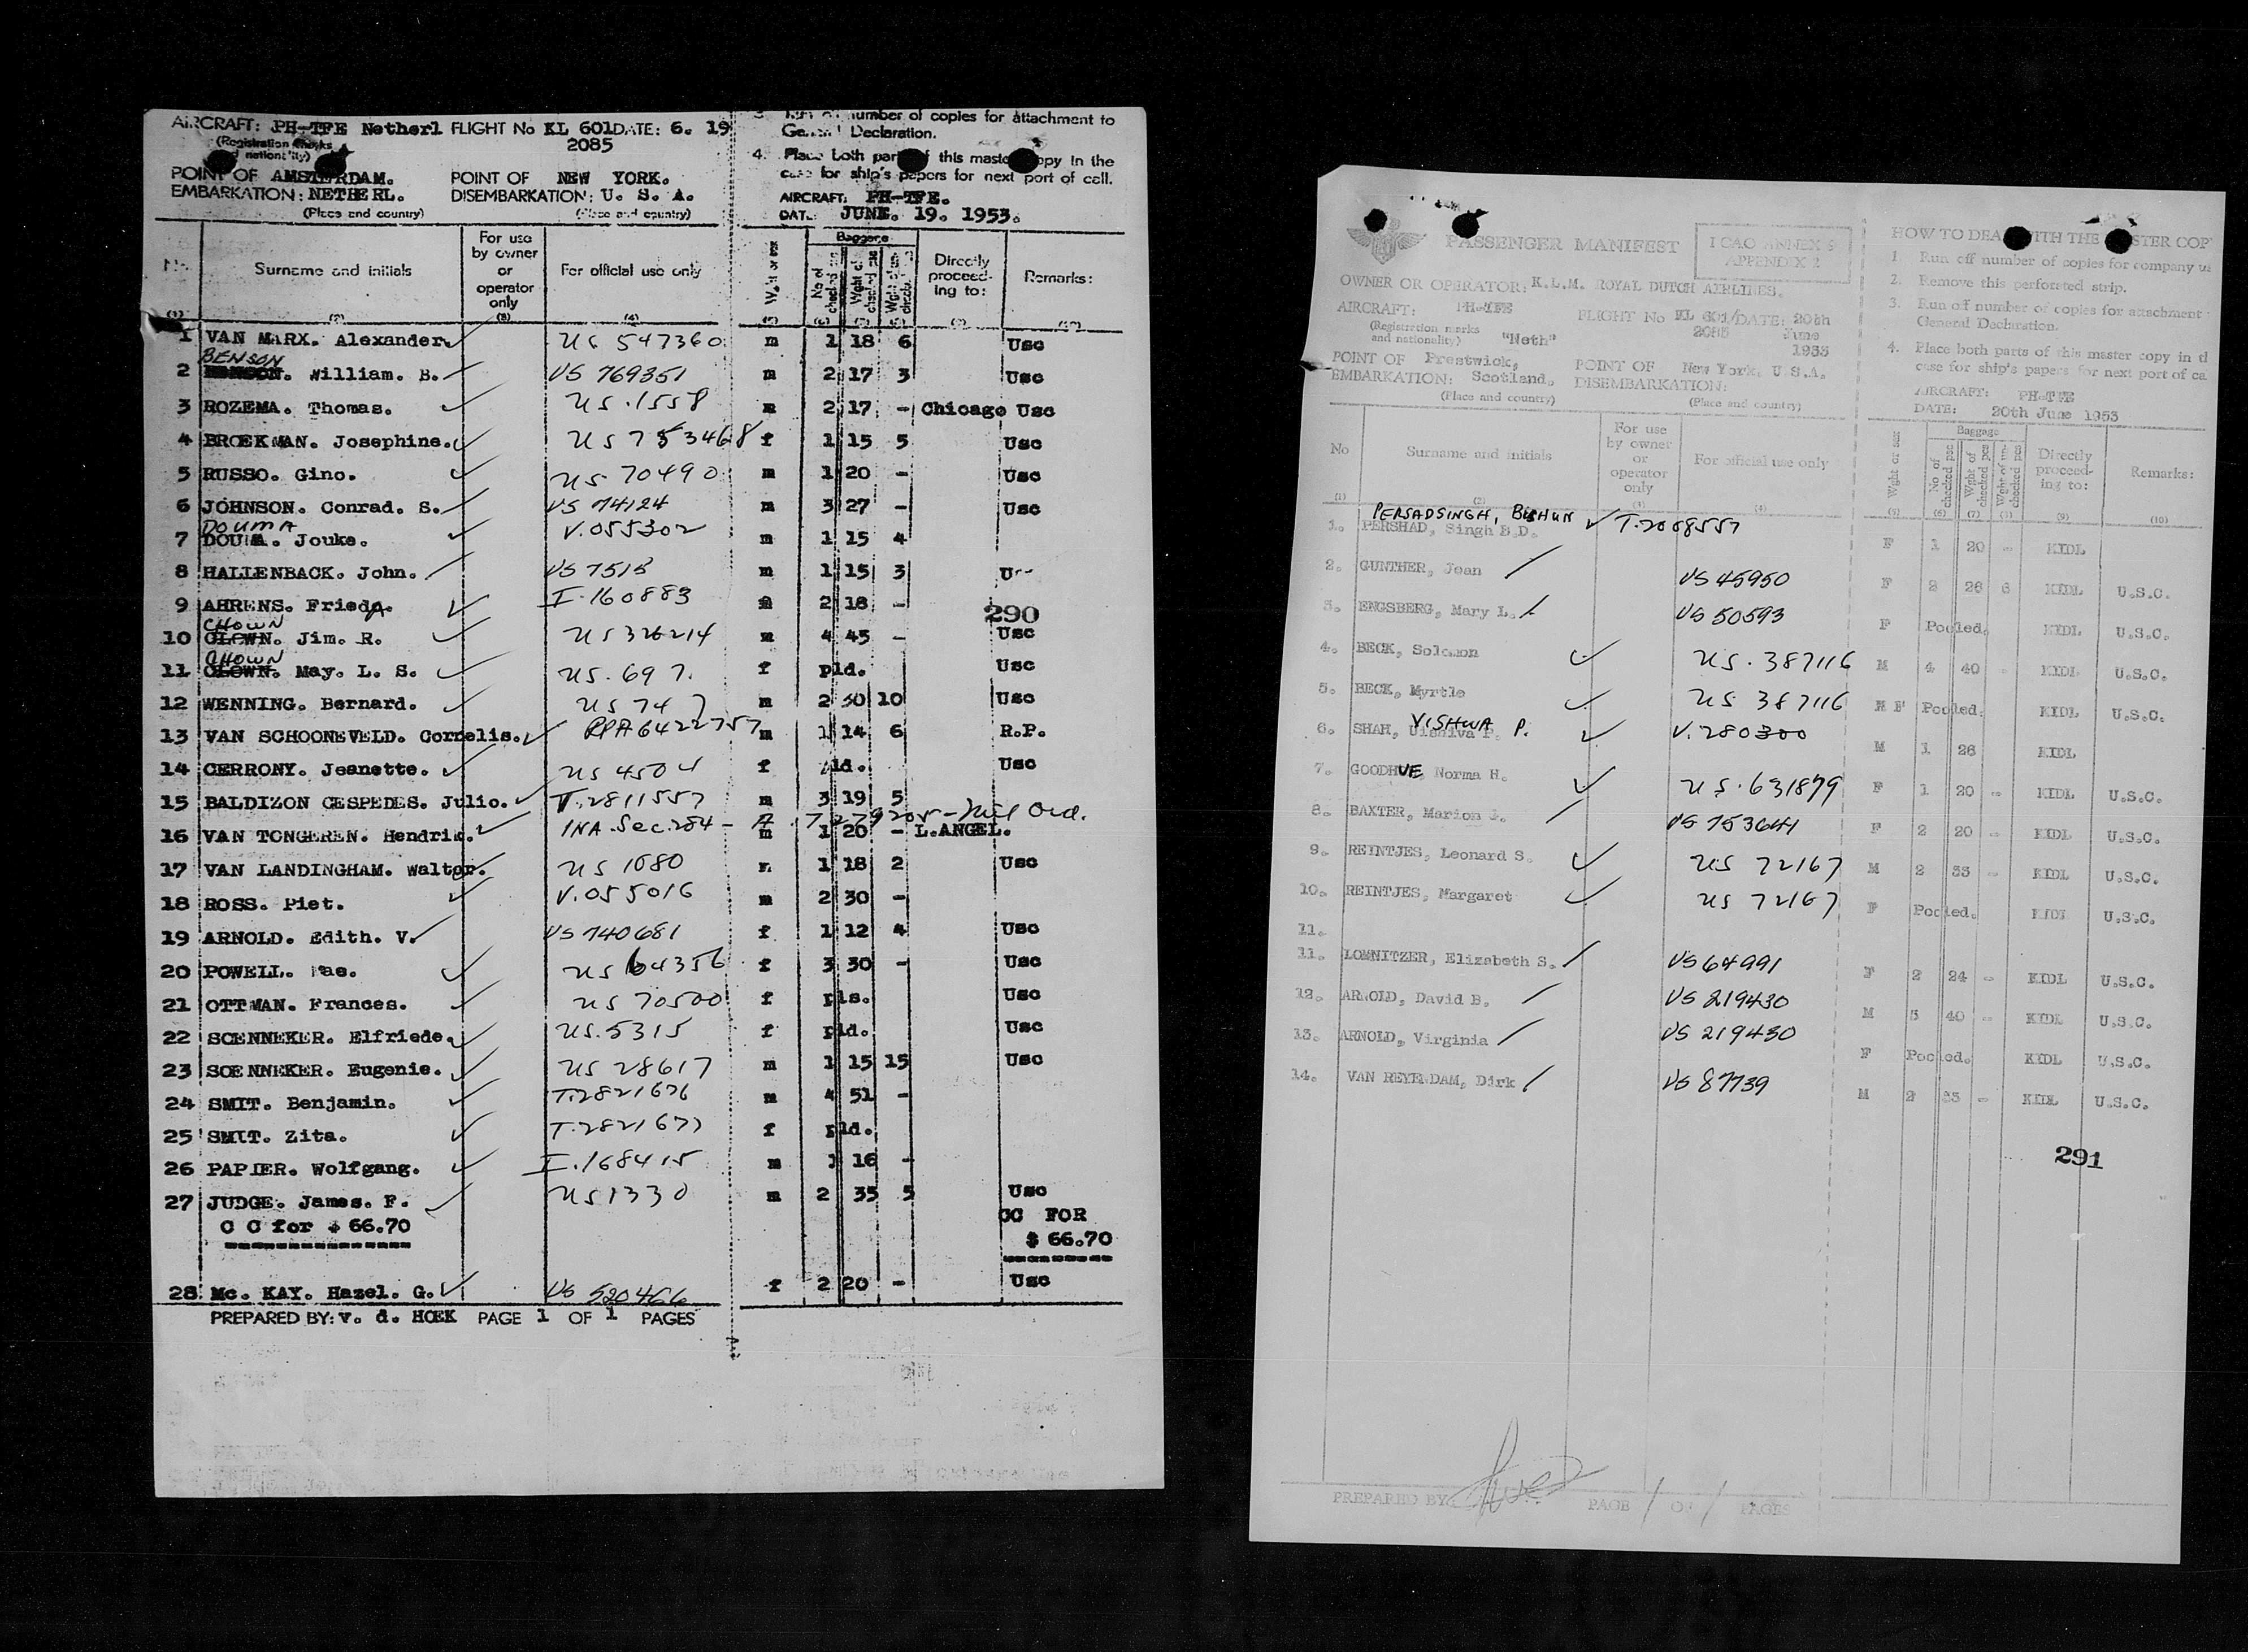 AIRCRAFT: PH-TFE Netherl FLIGHT No KL 601 DATE: 6. 19
(Registration marks 2085
nationality)
POINT OF AMSTERDAM. POINT OF NEW YORK.
EMBARKATION: NETHERL. DISEMBARKATION: U. S. A.
(Place and country) (Place and country)
number of copies for attachment to
General Declaration.
4. Place both parts of this master copy in the
case for ship's papers for next port of call.
AIRCRAFT: PH-TFE.
DATE: JUNE. 19. 1953.
No. Surname and initials For use by owner or operator only For official use only Wght or sex Baggage No of checked pcs Wght of checked pcs Directly proceeding to: Remarks:
(1) (2) (3) (4) (5) (6) (7) (8) (9) (10)
1 VAN MARX. Alexander. US 547360 m 1 18 6 Usc
BENSON
2 William. B. US 769351 m 2 17 3 Usc
3 ROZEMA. Thomas. US.1558 m 2 17 - Chicago Usc
4 BROEKMAN. Josephine. US 753468 f 1 15 5 Usc
5 RUSSO. Gino. US 70490 m 1 20 - Usc
6 JOHNSON. Conrad. S. US 74124 m 3 27 - Usc
DOUMA
7 DOUMA. Jouke. V.055302 m 1 15 4
8 HALLENBACK. John. US 7515 m 1 15 3 U
9 AHRENS. Frieda. I.160883 2 18 -
290
CHOWN
10 CLOWN. Jim. R. US 326214 m 4 45 - Usc
CHOWN
11 CLOWN. May. L. S. US.697. f pld. Usc
12 WENNING. Bernard. US 747 m 2 30 10 Usc
13 VAN SCHOONEVELD. Cornelis. RPA6422757 m 1 14 6 R.P.
14 CERRONY. Jeanette. US 4504 f pld. Usc
15 BALDIZON CESPEDES. Julio. T.2811557 m 3 19 5
16 VAN TONGEREN. Hendrik. INA.Sec.284 - A m 1 20 - L.ANGEL.
17 VAN LANDINGHAM. Walter. US 1080 m 1 18 2 Usc
18 ROSS. Piet. V.055016 m 2 30 -
19 ARNOLD. Edith. V. US 740681 f 1 12 4 Usc
20 POWELL. Mae. US 64356 f 3 30 - Usc
21 OTTMAN. Frances. US 70500 f pls. Usc
22 SOENNEKER. Elfriede. US.5315 f pld. Usc
23 SOENNEKER. Eugenie. US 28617 m 1 15 15 Usc
24 SMIT. Benjamin. T.2821676 m 4 51 -
25 SMIT. Zita. T.2821677 f pld.
26 PAPIER. Wolfgang. I.168415 m 1 16 -
27 JUDGE. James. F. US 1330 m 2 35 5 Usc
C C for $ 66.70 CC FOR
$ 66.70
28. Mc. KAY. Hazel. G. US 520466 f 2 20 - Usc
PREPARED BY: v. d. HOEK PAGE 1 OF 1 PAGES
PASSENGER MANIFEST
ICAO ANNEX 9
APPENDIX 2
OWNER OR OPERATOR: K.L.M. ROYAL DUTCH AIRLINES.
AIRCRAFT: PH-TFE FLIGHT No KL 601/ DATE: 20th
(Registration marks and nationality) "Neth" 2085 June
1953
POINT OF Prestwick, POINT OF New York. U.S.A.
EMBARKATION: Scotland, DISEMBARKATION:
(Place and country) (Place and country)
HOW TO DEAL WITH THE MASTER COP
1. Run off number of copies for company us
2. Remove this perforated strip.
3. Run off number of copies for attachment
General Declaration.
4. Place both parts of this master copy in th
case for ship's papers for next port of ca
AIRCRAFT: PH-TFE
DATE: 20th June 1953
No Surname and initials For use by owner or operator only For official use only Wght or sex Baggage No of checked pcs Wght of checked pcs Directly proceeding to: Remarks:
(1) (2) (3) (4) (5) (6) (7) (8) (9) (10)
PERSADSINGH, BISHUN T.2008557
1. PERSHAD, Singh B.D. F 1 20 - KIDL
2. GUNTHER, Jean US 45950 F 2 26 6 KIDL U.S.C.
3. ENGSBERG, Mary L. US 50593 F Pooled. KIDL U.S.C.
4. BECK, Solomon US.387116 M 4 40 - KIDL U.S.C.
5. BECK, Myrtle US 387116 M F Pooled. KIDL U.S.C.
VISHWA P.
6. SHAH, Uishiva P. V.280300 M 1 26 KIDL
7. GOODHUE, Norma H. US.631879 F 1 20 - KIDL U.S.C.
8. BAXTER, Marion J. US 753641 F 2 20 - KIDL U.S.C.
9. REINTJES, Leonard S. US 72167 M 2 33 - KIDL U.S.C.
10. REINTJES, Margaret US 72167 F Pooled. KIDL U.S.C.
11.
11. LOMNITZER, Elizabeth S. US 64991 F 2 24 - KIDL U.S.C.
12. ARNOLD, David B. US 219430 M 5 40 - KIDL U.S.C.
13. ARNOLD, Virginia US 219430 F Pooled. KIDL U.S.C.
14. VAN REYENDAM, Dirk US 87739 M 2 33 - KIDL U.S.C.
291
PREPARED BY PAGE 1 OF 1 PAGES